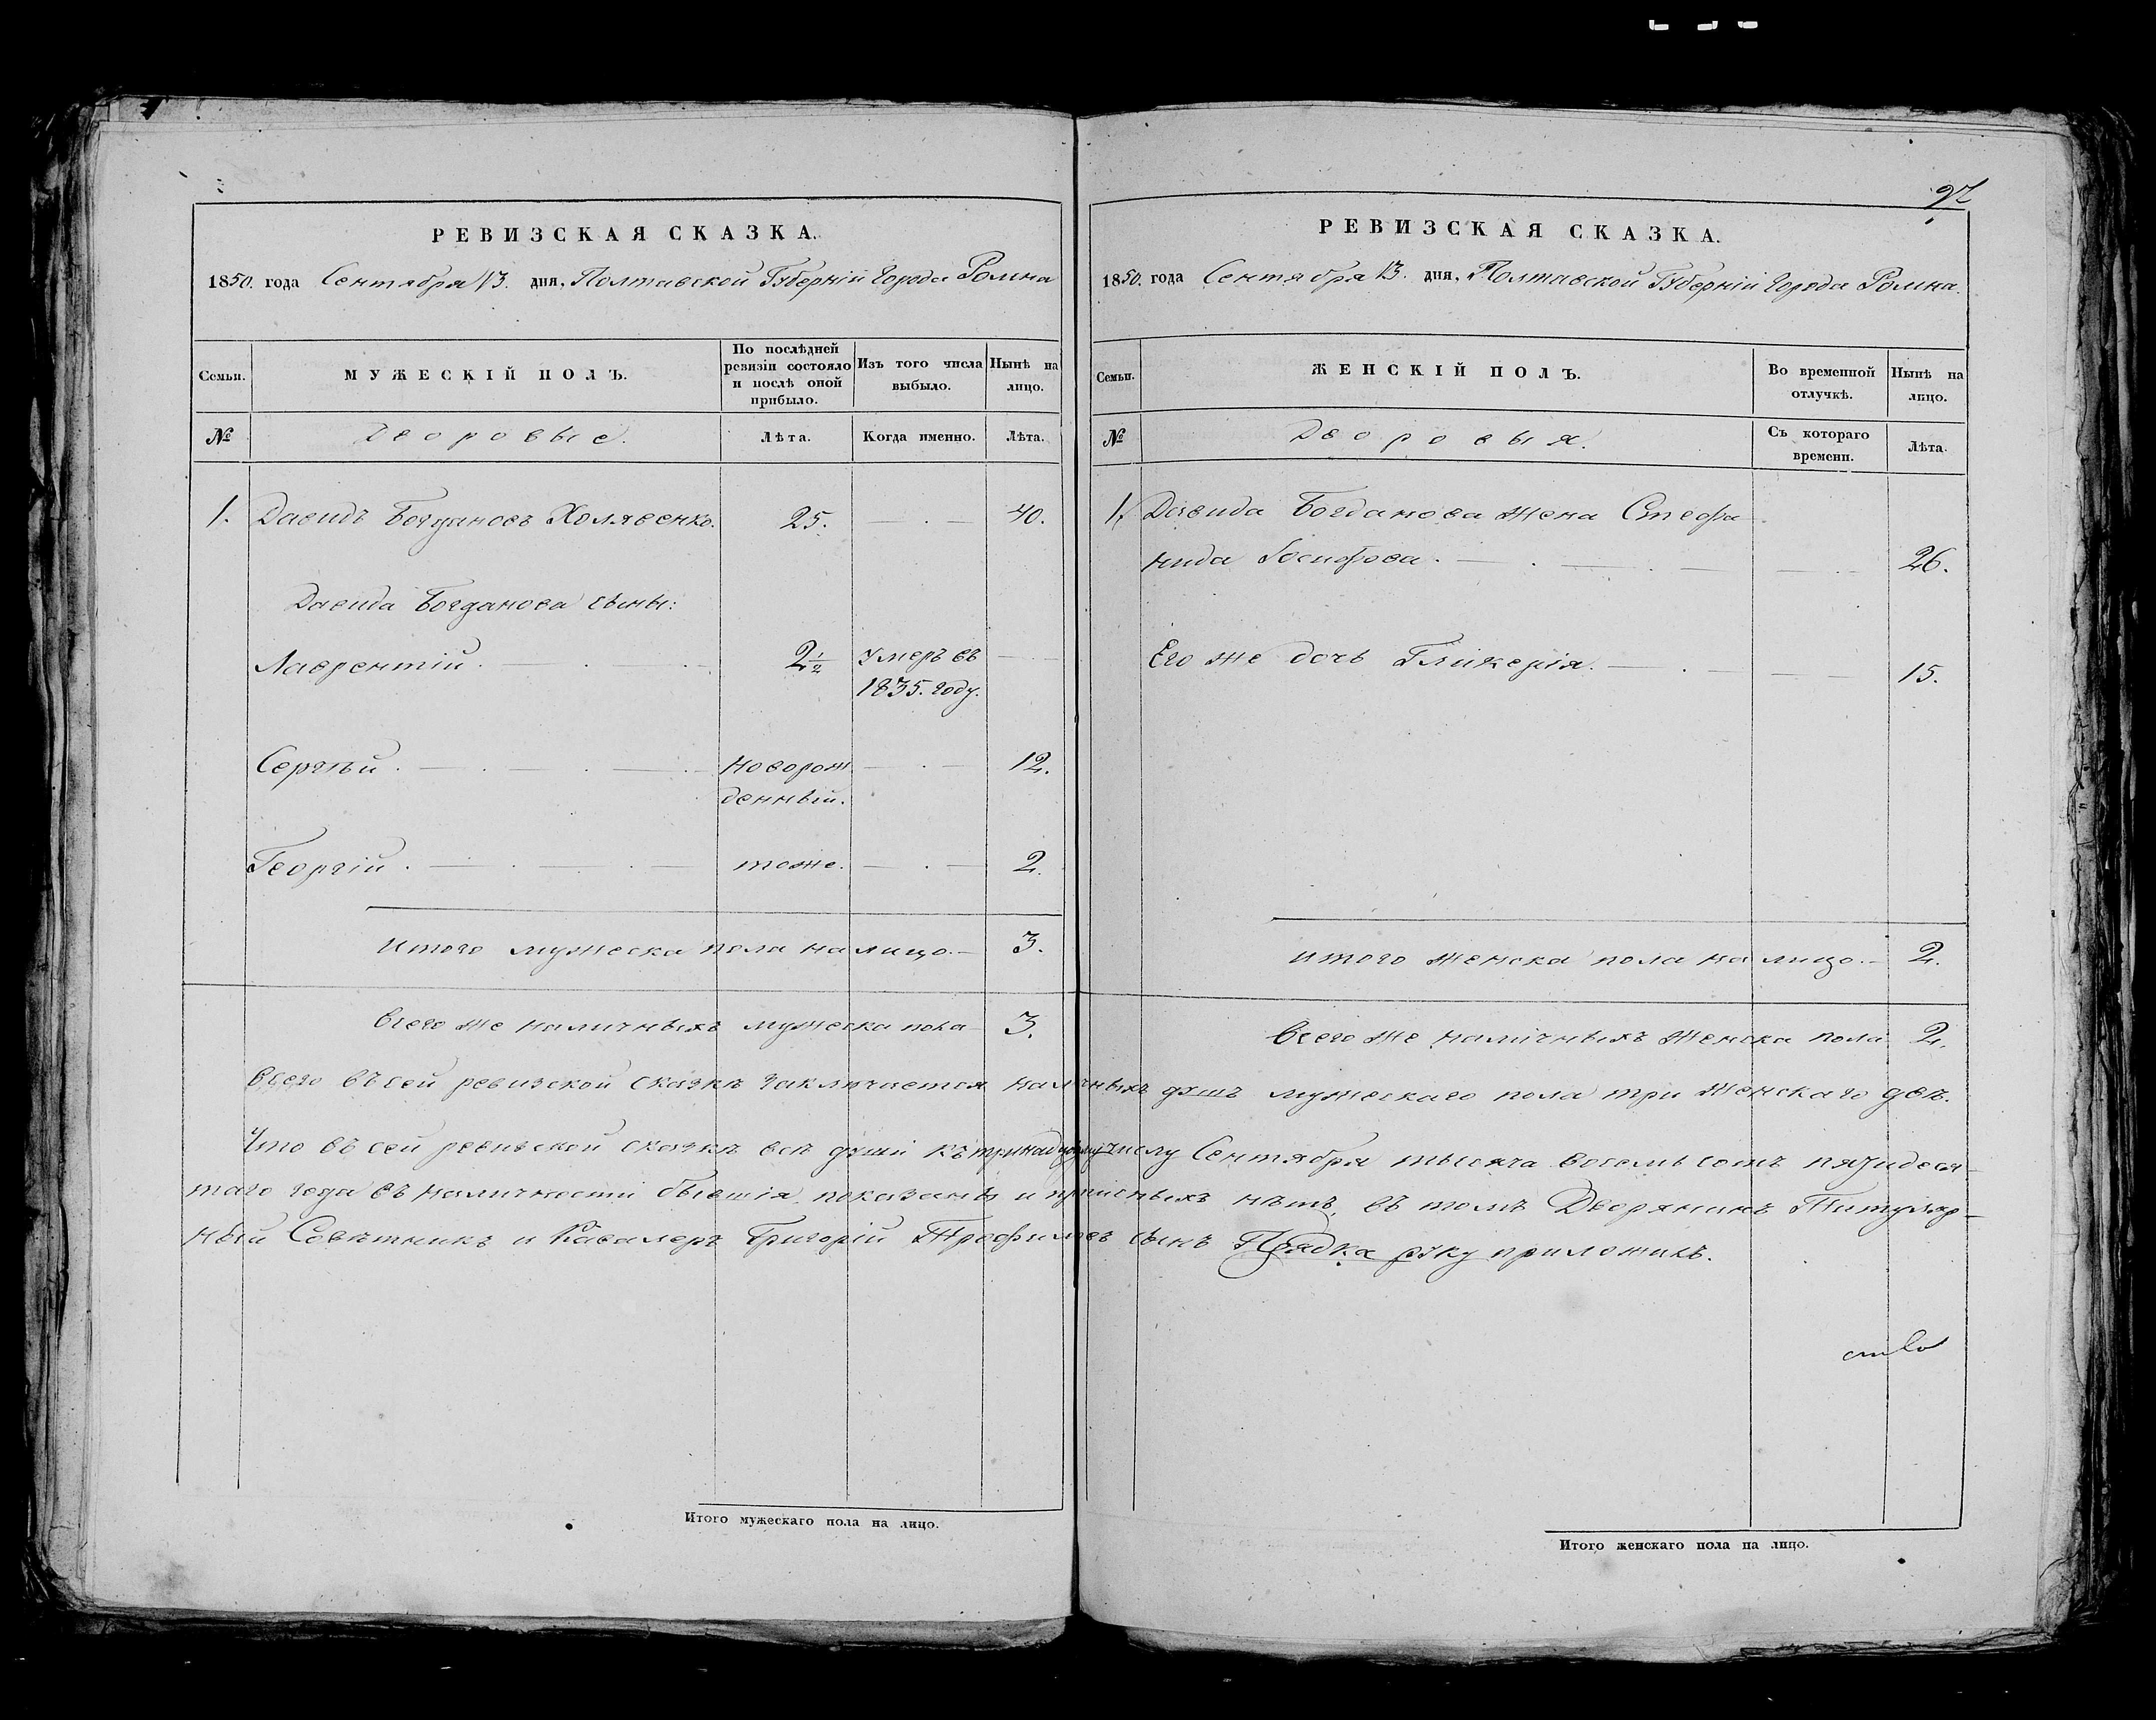 РЕВИЗСКАЯ СКАЗКА.
1850. года Сентября 13. дня, Полтавской Губерніи Города Ромна
Семьи.
МУЖЕСКІЙ ПОЛЪ.
По послѣдней ревизіи состояло и послѣ оной прибыло.
Изъ того числа выбыло.
Нынѣ на лицо.
№
Дворовые.
Лѣта.
Когда именно.
Лѣта.
1. Давидъ Богдановъ Холявенко. 25. 40.
Давида Богданова сыны:
Лаврентій. 2 1/2 умеръ въ
1835. году.
Сергѣй. новорож 12.
денный.
Георгій. тоже. 2.
Итого мужеска пола на лицо. 3.
Всего же наличныхъ мужеска пола 3.
Итого мужескаго пола на лицо.
97
РЕВИЗСКАЯ СКАЗКА.
1850. года Сентября 13. дня, Полтавской Губерніи Города Ромна.
Семьи.
ЖЕНСКІЙ ПОЛЪ.
Во временной отлучкѣ.
Нынѣ на лицо.
№
Дворовыя.
Съ котораго времени.
Лѣта.
1. Давида Богданова жена Стефа
нида Іосифова. 26.
Его же дочь Гликерія. 15.
Итого женска пола на лицо. 2.
Всего же наличныхъ женска пола 2.
Всего въ сей ревизской сказкѣ заключается наличныхъ душъ мужескаго пола три женскаго двѣ.
Что въ сей ревизской сказкѣ всѣ души къ тринадцатому числу Сентября тысяча восемь сотъ пятидеся-
таго года въ наличности бывшія показаны и прописныхъ нѣтъ, въ томъ Дворянинъ Титуляр-
ный Совѣтникъ и Кавалеръ Григорій Трофимовъ сынъ руку приложилъ.
Итого женскаго пола на лицо.